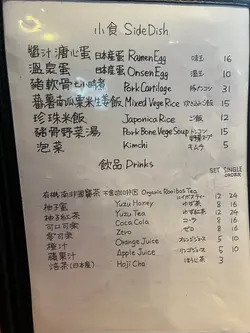 小食 Side Dish
醬汁溏心蛋 日本産蛋 Ramen Egg 味玉 16
溫泉蛋 日本産蛋 Onsen Egg 温玉 10
豬軟骨 Pork Cartilage 豚ナンコツ 31
蕃薯南瓜粟米生姜飯 Mixed Vege Rice 15
珍珠米飯 Japonica Rice ご飯 12
豬骨野菜湯 Pork Bone Vege Soup トンコツ野菜スープ 15
泡菜 Kimchi キムチ 5
飲品 Drinks
SET SINGLE ORDER
有機南非國寶茶 不含咖啡因 Organic Rooibos Tea ルイボスティー 12 24
柚子蜜 Yuzu Honey ゆず茶 8 16
柚子紅茶 Yuzu Tea ゆず紅茶 12 24
可口可樂 Coca Cola コーラ 8 16
Zero ゼロ 8 16
橙汁 Orange Juice オレンジジュース 5 10
蘋果汁 Apple Juice リンゴジュース 5 10
焙茶(日本産) Hoji Cha ほうじ茶 3